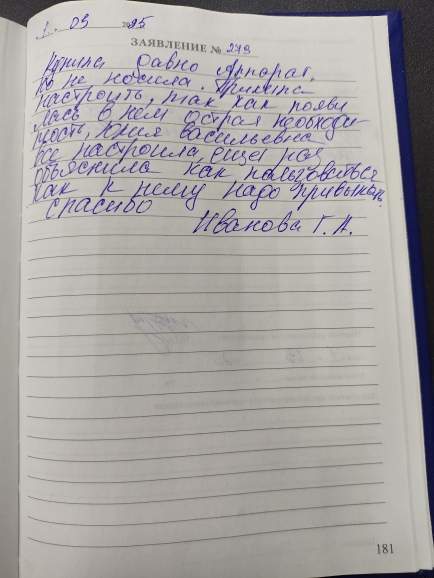 1. 03 2025
ЗАЯВЛЕНИЕ № 279
Купила давно аппарат,
но не носила. Пришла
настроить, так как появи
лась в нем острая необходи
мость, Юлия Васильевна
все настроила, ещё раз
объяснила как пользоваться
как к нему надо привыкать.
спасибо
Иванова Г. А.
181